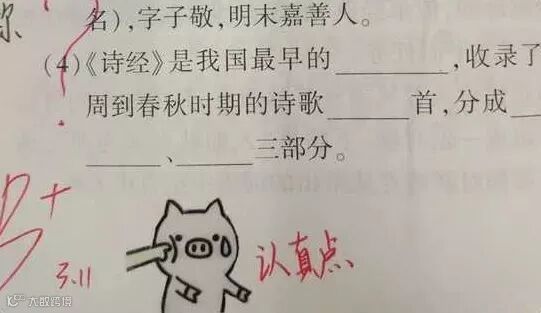 名),字子敬,明末嘉善人。
(4)《诗经》是我国最早的________,收录了
周到春秋时期的诗歌______首,分成__
______、______三部分。
3.11
认真点
大数跨境